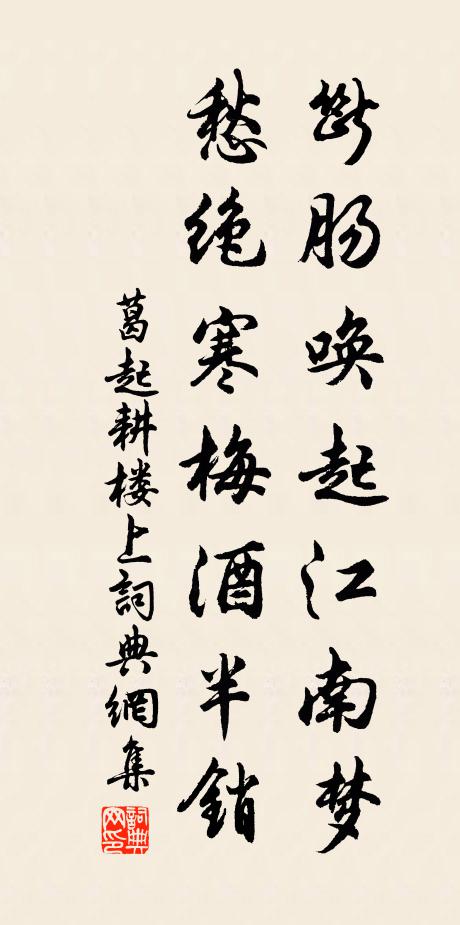 断肠唤起江南梦
愁绝寒梅酒半销
葛起耕楼上詞典網集
詞典网印